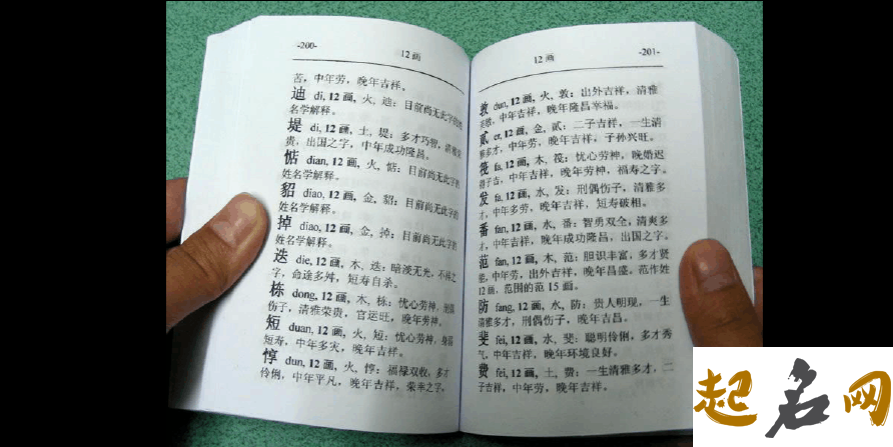 -200-
12画
苦，中年劳，晚年吉祥。
迪 di, 12画，火，迪：目前尚无此字的姓
名学解释。
堤 di, 12画，土，堤：多才巧智，清雅荣
贵，出国之字，中年成功隆昌。
惦 dian, 12画，火，惦：目前尚无此字的
姓名学解释。
貂 diao, 12画，金，貂：目前尚无此字的
姓名学解释。
掉 diao, 12画，金，掉：目前尚无此字的
姓名学解释。
迭 die, 12画，木，迭：暗淡无光，不祥之
字，命途多舛，短寿自杀。
栋 dong, 12画，木，栋：忧心劳神，
伤子，清雅荣贵，官运旺，晚年劳神。
短 duan, 12画，火，短：忧心劳神，
短寿，中年多灾，晚年吉祥。
惇 dun, 12画，火，惇：福禄双收，多才
伶俐，中年平凡，晚年吉祥，荣幸之字。
12画
-201-
敦 dun, 12画，火，敦：出外吉祥，清雅
，中年吉祥，晚年隆昌幸福。
贰 er, 12画，金，贰：二子吉祥，一生清
雅多才，中年劳，晚年吉祥，子孙兴旺。
筏 fa, 12画，木，筏：忧心劳神，晚婚迟
得子吉，中年吉祥，晚年劳神，福寿之字。
发 fa, 12画，水，发：刑偶伤子，清雅多
才，中年多劳，晚年吉祥，短寿破相。
番 fan, 12画，水，番：智勇双全，清爽多
才，中年吉祥，晚年成功隆昌，出国之字。
范 fan, 12画，木，范：胆识丰富，多才贤
能，中年劳，出外吉祥，晚年昌盛。范作姓
12画，范围的范15画。
防 fang, 12画，水，防：贵人明现，一生
清雅多才，刑偶伤子，晚年吉昌。
斐 fei, 12画，水，斐：聪明伶俐，多才秀
气，中年吉祥，晚年环境良好。
费 fei, 12画，土，费：一生清雅多才，二
子吉祥，中年劳，晚年吉祥。
起名网